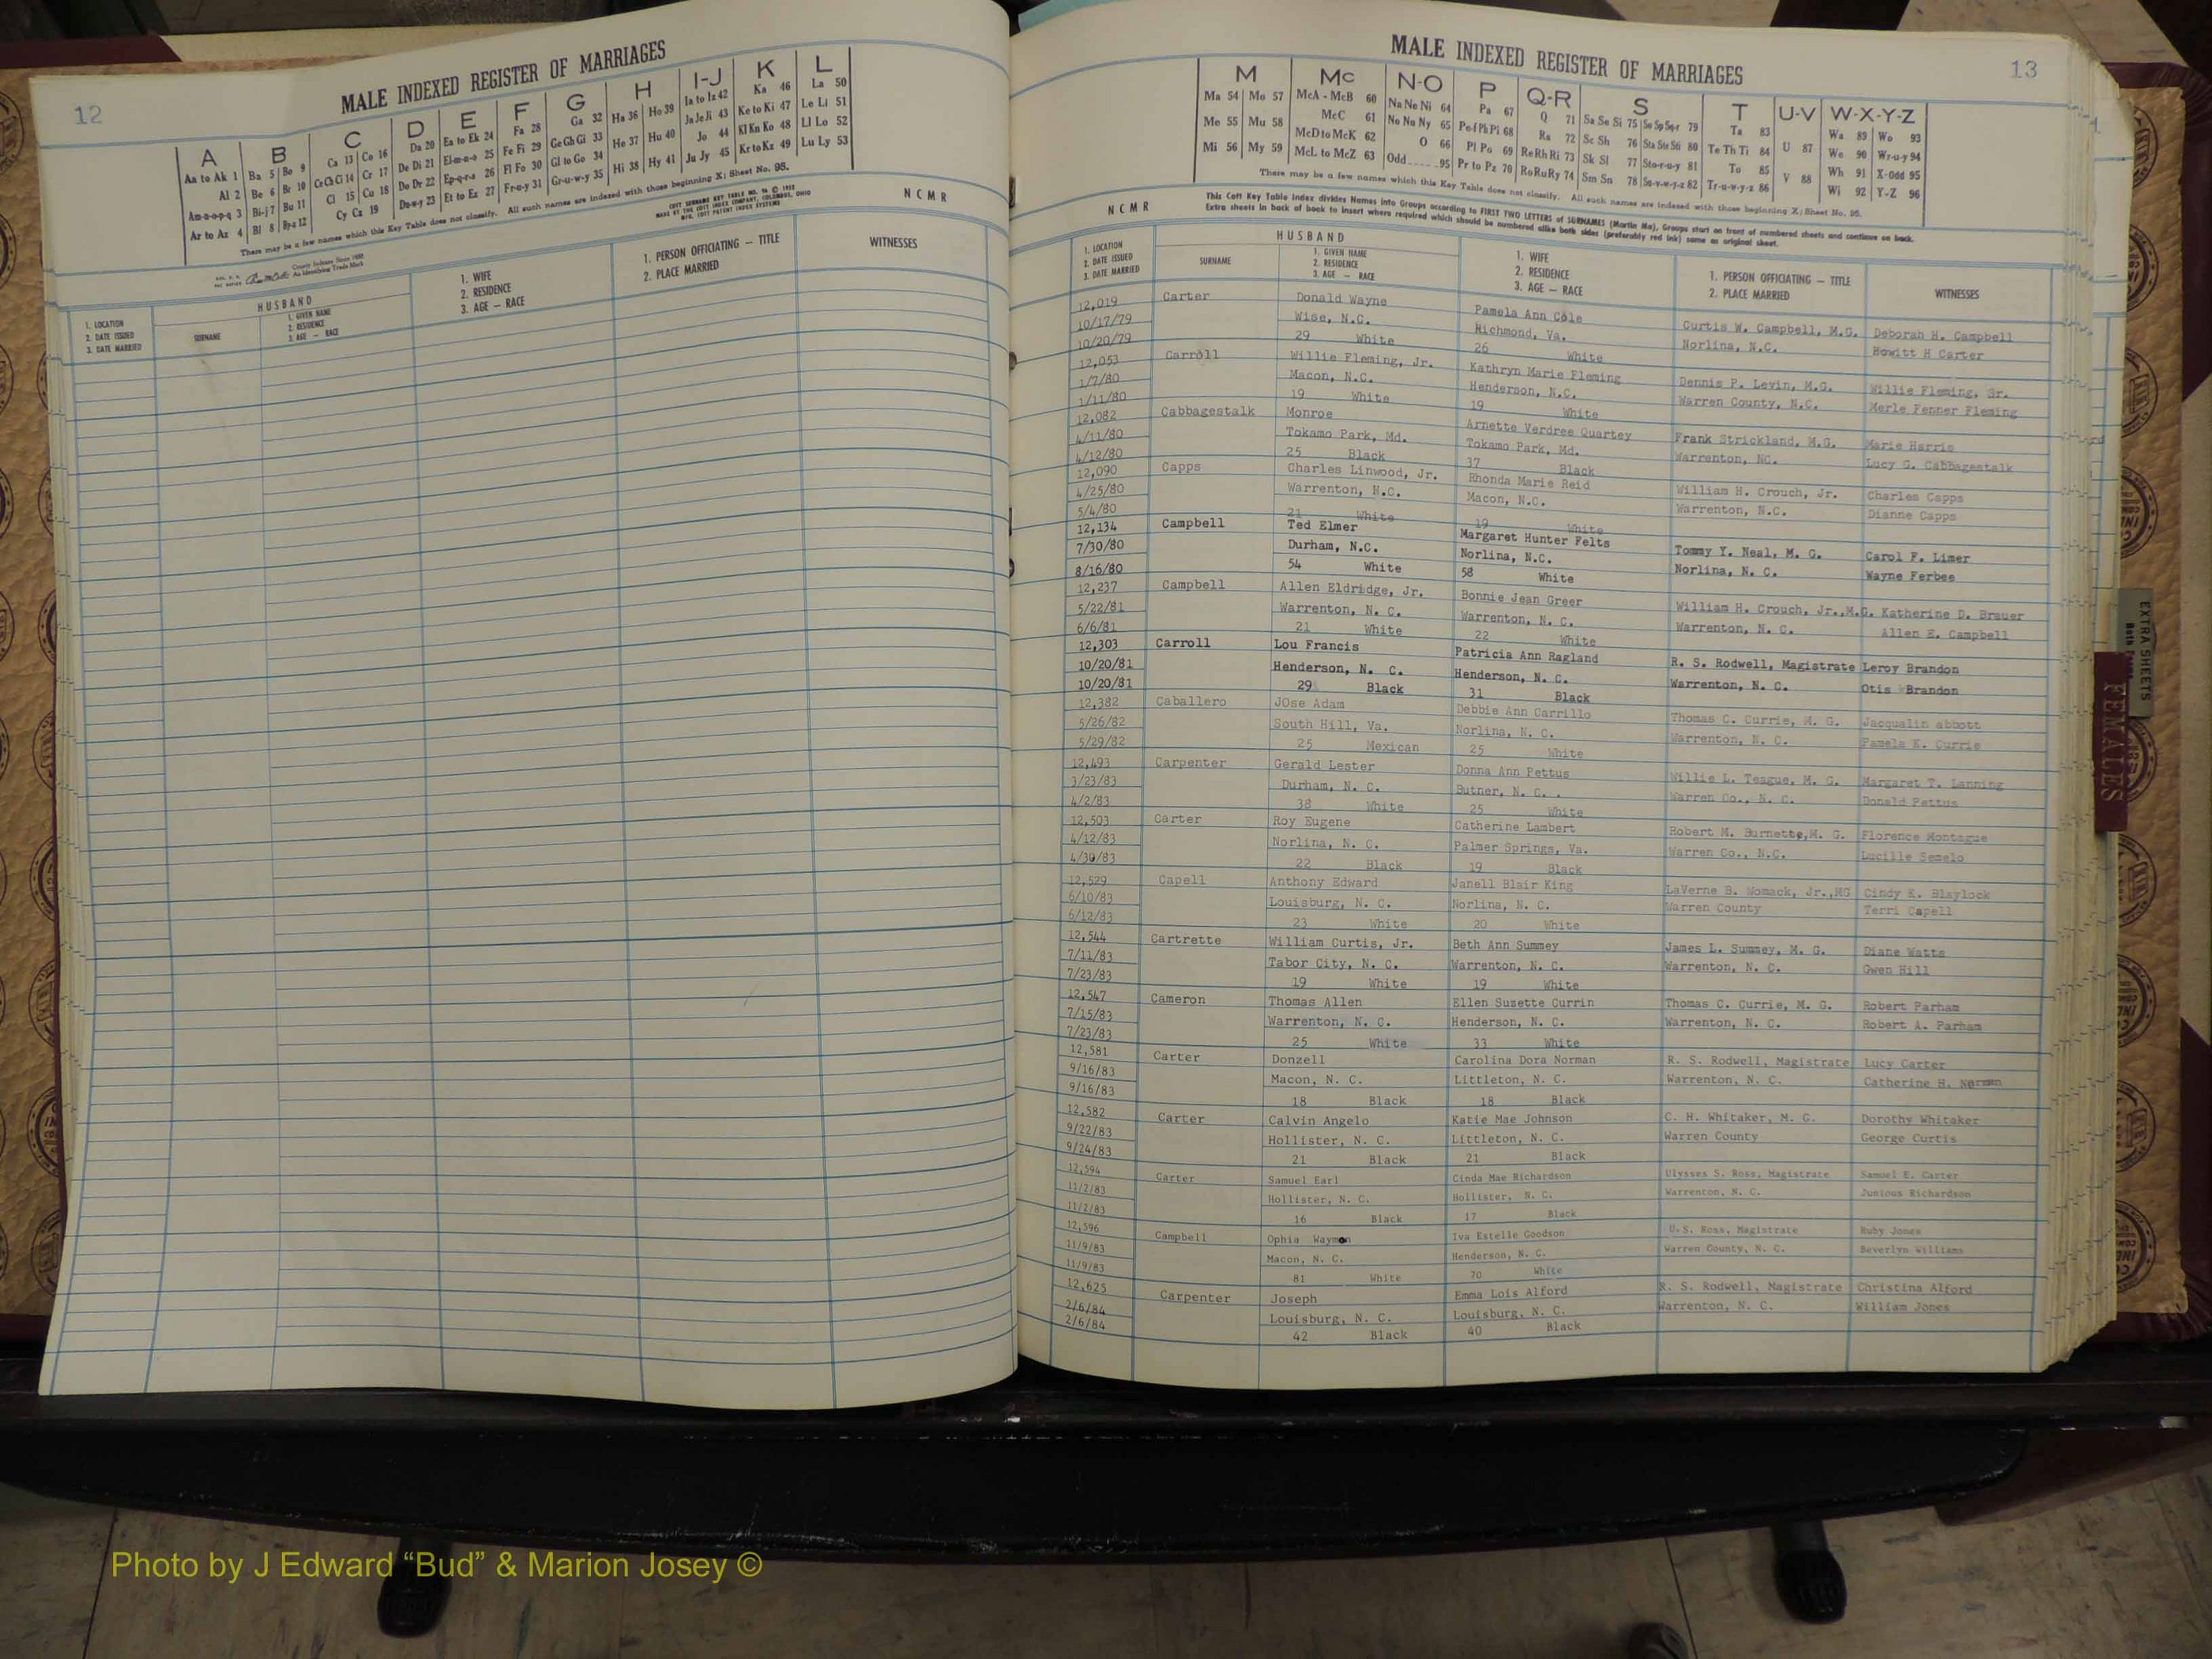 12
MALE INDEXED REGISTER OF MARRIAGES
A B C D E F G H I-J K L
Aa to Ak 1 Ba 5 Bo 9 Ca 13 Co 16 Da 20 Ea to Ek 24 Fa 28 Ga 32 Ha 36 Ho 39 Ia to Iz 42 Ka 46 La 50
Al 2 Be 6 Br 10 Ce Ch Ci 14 Cr 17 De Di 21 El-m-n-o 25 Fe Fi 29 Ge Gh Gi 33 He 37 Hu 40 Ja Je Ji 43 Ke to Ki 47 Le Li 51
Am-n-o-p-q 3 Bi-j 7 Bu 11 Cl 15 Cu 18 Do Dr 22 Ep-q-r-s 26 Fl Fo 30 Gl to Go 34 Hi 38 Hy 41 Jo 44 Kl Kn Ko 48 Ll Lo 52
Ar to Az 4 Bl 8 By-z 12 Cy Cz 19 Du-w-y 23 Et to Ez 27 Fr-u-y 31 Gr-u-w-y 35 Ju Jy 45 Kr to Kz 49 Lu Ly 53
There may be a few names which this Key Table does not classify. All such names are indexed with those beginning X; Sheet No. 95.
NCMR
HUSBAND
1. LOCATION
2. DATE ISSUED
3. DATE MARRIED
SURNAME
1. GIVEN NAME
2. RESIDENCE
3. AGE — RACE
1. WIFE
2. RESIDENCE
3. AGE — RACE
1. PERSON OFFICIATING — TITLE
2. PLACE MARRIED
WITNESSES
MALE INDEXED REGISTER OF MARRIAGES
13
M Mc N-O P Q-R S T U-V W-X-Y-Z
Ma 54 Mo 57 McA - McB 60 Na Ne Ni 64 Pa 67 Q 71 Sa Se Si 75 So Sp Sq-r 79 Ta 83 U 87 Wa 89 Wo 93
Me 55 Mu 58 McC 61 No Nu Ny 65 Pe-f Ph Pi 68 Ra 72 Sc Sh 76 Sta Ste Sti 80 Te Th Ti 84 V 88 We 90 Wr-u-y 94
Mi 56 My 59 McD to McK 62 O 66 Pl Po 69 Re Rh Ri 73 Sk Sl 77 Sto-r-u-y 81 To 85 Wh 91 X-odd 95
McL to McZ 63 Odd 95 Pr to Pz 70 Ro Ru Ry 74 Sm Sn 78 Su-v-w-y-z 82 Tr-u-w-y-z 86 Wi 92 Y-Z 96
There may be a few names which this Key Table does not classify. All such names are indexed with those beginning X; Sheet No. 95.
This Cott Key Table Index divides Names into Groups according to FIRST TWO LETTERS of SURNAMES (Martin Ma), Groups start on front of numbered sheets and continue on back.
Extra sheets in back of book to insert where required which should be numbered alike both sides (preferably red ink) same as original sheet.
NCMR
HUSBAND
1. LOCATION
2. DATE ISSUED
3. DATE MARRIED
SURNAME
1. GIVEN NAME
2. RESIDENCE
3. AGE — RACE
1. WIFE
2. RESIDENCE
3. AGE — RACE
1. PERSON OFFICIATING — TITLE
2. PLACE MARRIED
WITNESSES
12,019 Carter Donald Wayne Pamela Ann Cole Curtis W. Campbell, M.G. Deborah H. Campbell
10/17/79 Wise, N.C. Richmond, Va. Norlina, N.C. Howitt H Carter
10/20/79 29 White 26 White
12,053 Carroll Willie Fleming, Jr. Kathryn Marie Fleming Dennis P. Levin, M.G. Willie Fleming, Sr.
1/7/80 Macon, N.C. Henderson, N.C. Warren County, N.C. Merle Fenner Fleming
1/11/80 19 White 19 White
12,082 Cabbagestalk Monroe Arnette Verdree Quartey Frank Strickland, M.G. Marie Harris
4/11/80 Tokamo Park, Md. Tokamo Park, Md. Warrenton, NC. Lucy G. Cabbagestalk
4/12/80 25 Black 37 Black
12,090 Capps Charles Linwood, Jr. Rhonda Marie Reid William H. Crouch, Jr. Charles Capps
4/25/80 Warrenton, N.C. Macon, N.C. Warrenton, N.C. Dianne Capps
5/4/80 21 White 19 White
12,134 Campbell Ted Elmer Margaret Hunter Felts Tommy Y. Neal, M. G. Carol F. Limer
7/30/80 Durham, N.C. Norlina, N.C. Norlina, N. C. Wayne Ferbee
8/16/80 54 White 58 White
12,237 Campbell Allen Eldridge, Jr. Bonnie Jean Greer William H. Crouch, Jr.,M.G. Katherine D. Brauer
5/22/81 Warrenton, N. C. Warrenton, N. C. Warrenton, N. C. Allen E. Campbell
6/6/81 21 White 22 White
12,303 Carroll Lou Francis Patricia Ann Ragland R. S. Rodwell, Magistrate Leroy Brandon
10/20/81 Henderson, N. C. Henderson, N. C. Warrenton, N. C. Otis Brandon
10/20/81 29 Black 31 Black
12,382 Caballero JOse Adam Debbie Ann Carrillo Thomas C. Currie, M. G. Jacqualin abbott
5/26/82 South Hill, Va. Norlina, N. C. Warrenton, N. C. Pamela K. Currie
5/29/82 25 Mexican 25 White
12,493 Carpenter Gerald Lester Donna Ann Pettus Willie L. Teague, M. G. Margaret T. Lanning
3/23/83 Durham, N. C. Butner, N. C. . Warren Co., N. C. Donald Pettus
4/2/83 38 White 25 White
12,503 Carter Roy Eugene Catherine Lambert Robert M. Burnette,M. G. Florence Montague
4/12/83 Norlina, N. C. Palmer Springs, Va. Warren Co., N.C. Lucille Semelo
4/30/83 22 Black 19 Black
12,529 Capell Anthony Edward Janell Blair King LaVerne B. Womack, Jr.,MG Cindy K. Blaylock
6/10/83 Louisburg, N. C. Norlina, N. C. Warren County Terri Capell
6/12/83 23 White 20 White
12,544 Cartrette William Curtis, Jr. Beth Ann Summey James L. Summey, M. G. Diane Watts
7/11/83 Tabor City, N. C. Warrenton, N. C. Warrenton, N. C. Gwen Hill
7/23/83 19 White 19 White
12,547 Cameron Thomas Allen Ellen Suzette Currin Thomas C. Currie, M. G. Robert Parham
7/15/83 Warrenton, N. C. Henderson, N. C. Warrenton, N. C. Robert A. Parham
7/23/83 25 White 33 White
12,581 Carter Donzell Carolina Dora Norman R. S. Rodwell, Magistrate Lucy Carter
9/16/83 Macon, N. C. Littleton, N. C. Warrenton, N. C. Catherine H. Norman
9/16/83 18 Black 18 Black
12,582 Carter Calvin Angelo Katie Mae Johnson C. H. Whitaker, M. G. Dorothy Whitaker
9/22/83 Hollister, N. C. Littleton, N. C. Warren County George Curtis
9/24/83 21 Black 21 Black
12,594 Carter Samuel Earl Cinda Mae Richardson Ulysses S. Ross, Magistrate Samuel E. Carter
11/2/83 Hollister, N. C. Hollister, N. C. Warrenton, N. C. Junious Richardson
11/2/83 16 Black 17 Black
12,596 Campbell Ophia Waymon Iva Estelle Goodson U.S. Ross, Magistrate Ruby Jones
11/9/83 Macon, N. C. Henderson, N. C. Warren County, N. C. Beverlyn Williams
11/9/83 81 White 70 White
12,625 Carpenter Joseph Emma Lois Alford R. S. Rodwell, Magistrate Christina Alford
2/6/84 Louisburg, N. C. Louisburg, N. C. Warrenton, N. C. William Jones
2/6/84 42 Black 40 Black
EXTRA SHEETS
FEMALES
Photo by J Edward “Bud” & Marion Josey ©